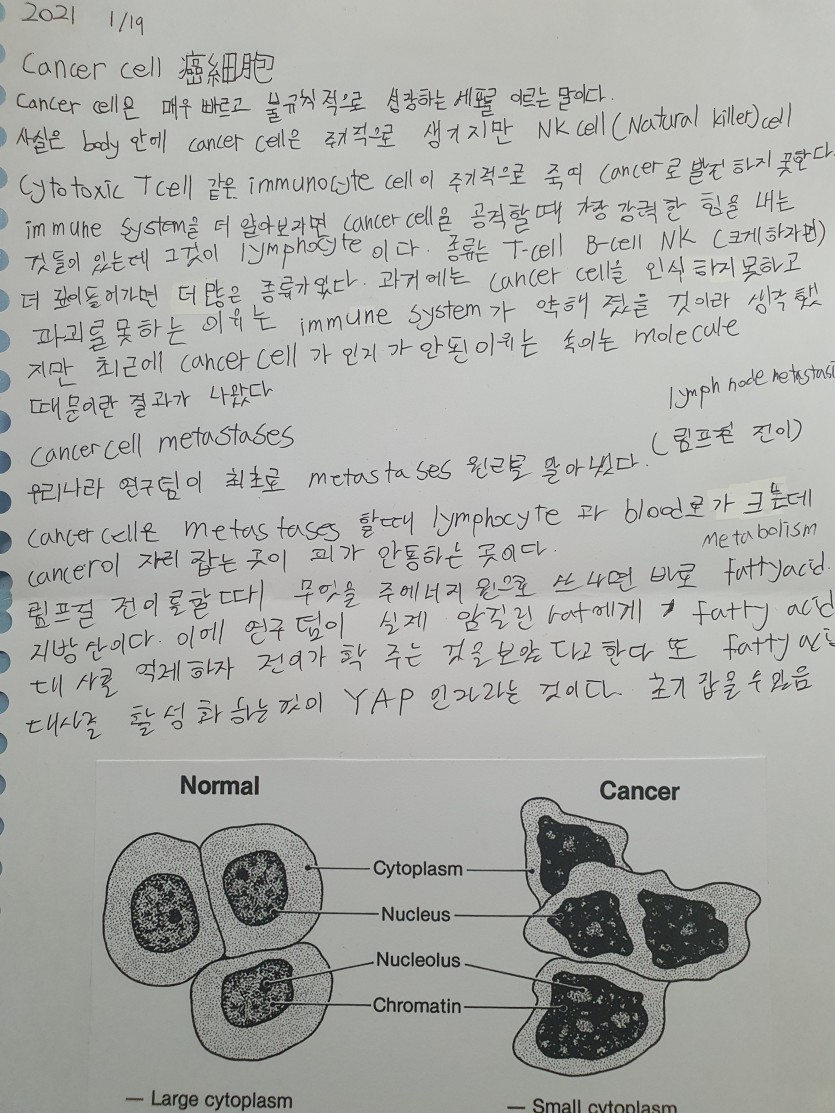 2021 1/19
Cancer cell 癌細胞
Cancer cell은 매우 빠르고 불규칙적으로 성장하는 세포를 이르는 말이다.
사실은 body 안에 cancer cell은 주기적으로 생기지만 NK cell (Natural killer) cell
Cytotoxic T cell 같은 immunocyte cell이 주기적으로 죽여 Cancer로 발전하지 못한다.
immune system을 더 알아보자면 cancer cell을 공격할때 가장 강력한 힘을 내는
것들이 있는데 그것이 lymphocyte이다. 종류는 T-cell B-cell NK (크게하자면)
더 깊이들어가면 더 많은 종류가있다. 과거에는 cancer cell을 인식하지못하고
파괴를 못하는 이유는 immune system가 약해졌을 것이라 생각했
지만 최근에 cancer cell가 인지가 안된이유는 속이는 molecule
때문이란 결과가 나왔다
lymph node metastasi
cancer cell metastases
(림프절 전이)
우리나라 연구팀이 최초로 metastases 원리를 알아냈다.
cancer cell은 metastases 할때 lymphocyte 과 blood로가 크는데
metabolism
cancer이 자리 잡는 곳이 피가 안통하는 곳이다.
림프절 전이를할때 무엇을 주에너지 원으로 쓰냐면 바로 fatty acid.
지방산이다. 이에 연구팀이 실제 암걸린 rat에게 fatty acid
대사를 억제하자 전이가 확 주는 것을보았다고한다 또 fatty aci
대사를 활성화하는것이 YAP인자라는 것이다. 초기 잡을수있음
Normal
Cancer
Cytoplasm
Nucleus
Nucleolus
Chromatin
— Large cytoplasm
— Small cytoplasm